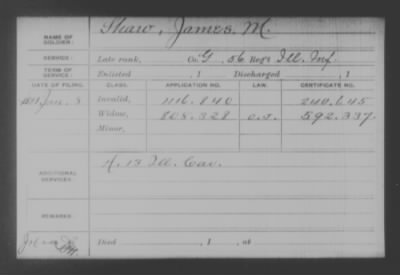 NAME OF SOLDIER: Shaw, James M.
SERVICE: Late rank, Co. G, 56 Reg't Ill. Inf.
TERM OF SERVICE: Enlisted , 1 Discharged , 1
DATE OF FILING. CLASS. APPLICATION NO. LAW. CERTIFICATE NO.
Invalid, 1116.840 240.645
Widow, 808.328 O.L. 592.337
Minor,
ADDITIONAL SERVICES. H. 13 Ill. Cav.
REMARKS.
Died , 1 , at